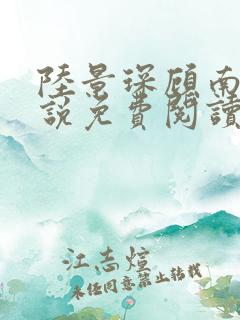 陸景琛顾南
説免費閱讀
江志煊
未经同意禁止转载